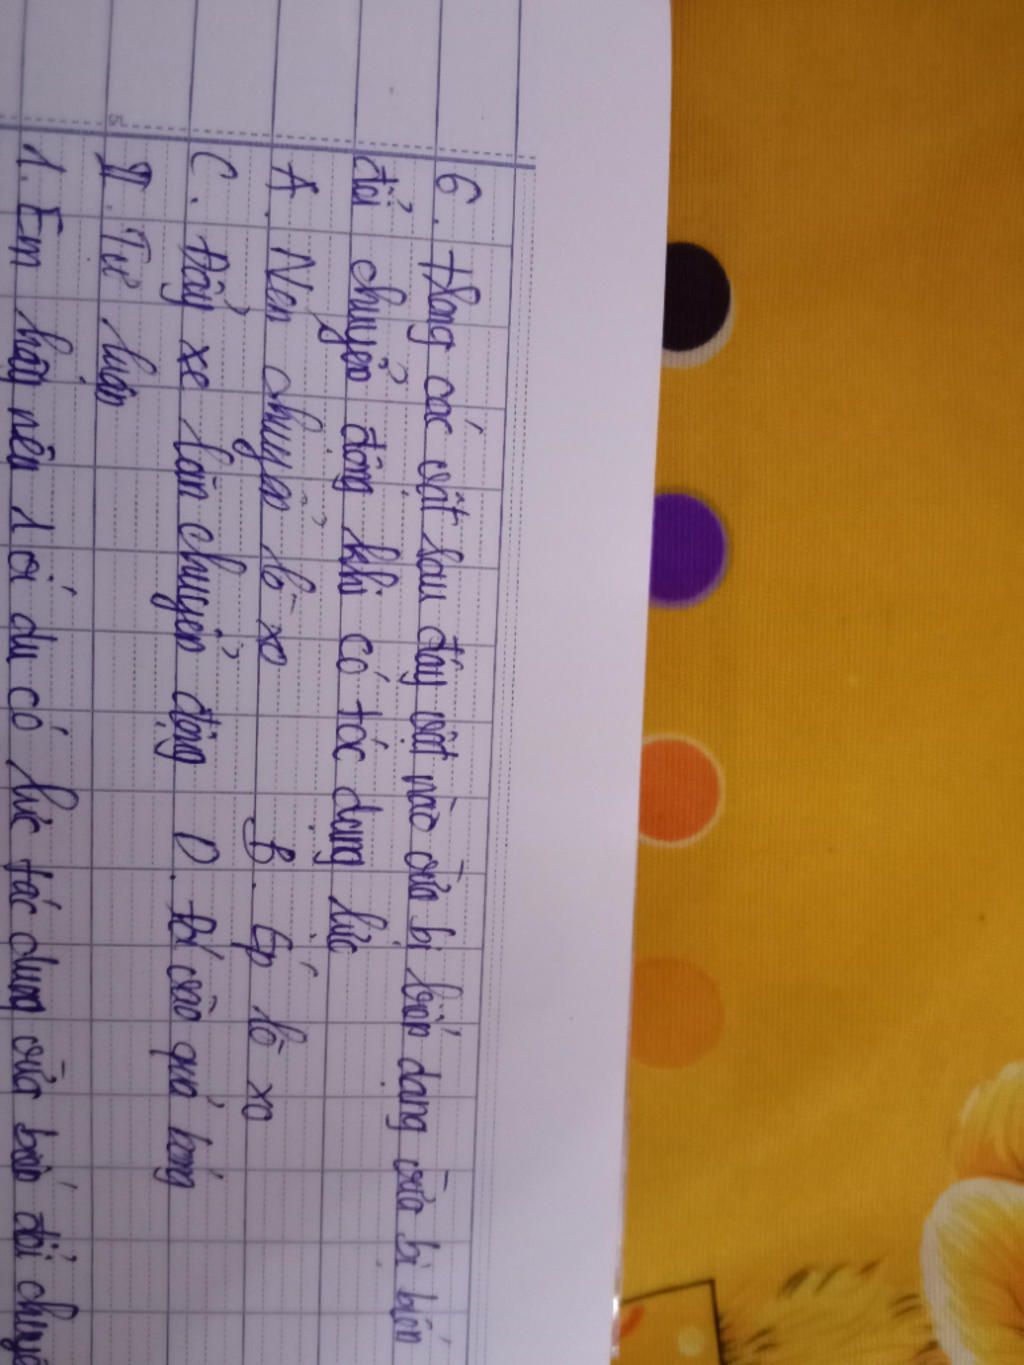 6. Trong các vật sau đây vật nào vừa bị biến dạng vừa bị biến
đổi chuyển động khi có tác dụng lực
A. Nén chuyển lò xo B. ép lò xo
C. Đẩy xe lăn chuyển động D. đá vào quả bóng
II. Tự luận
1. Em hãy nêu 1 ví dụ có lực tác dụng vừa biến đổi chuyể